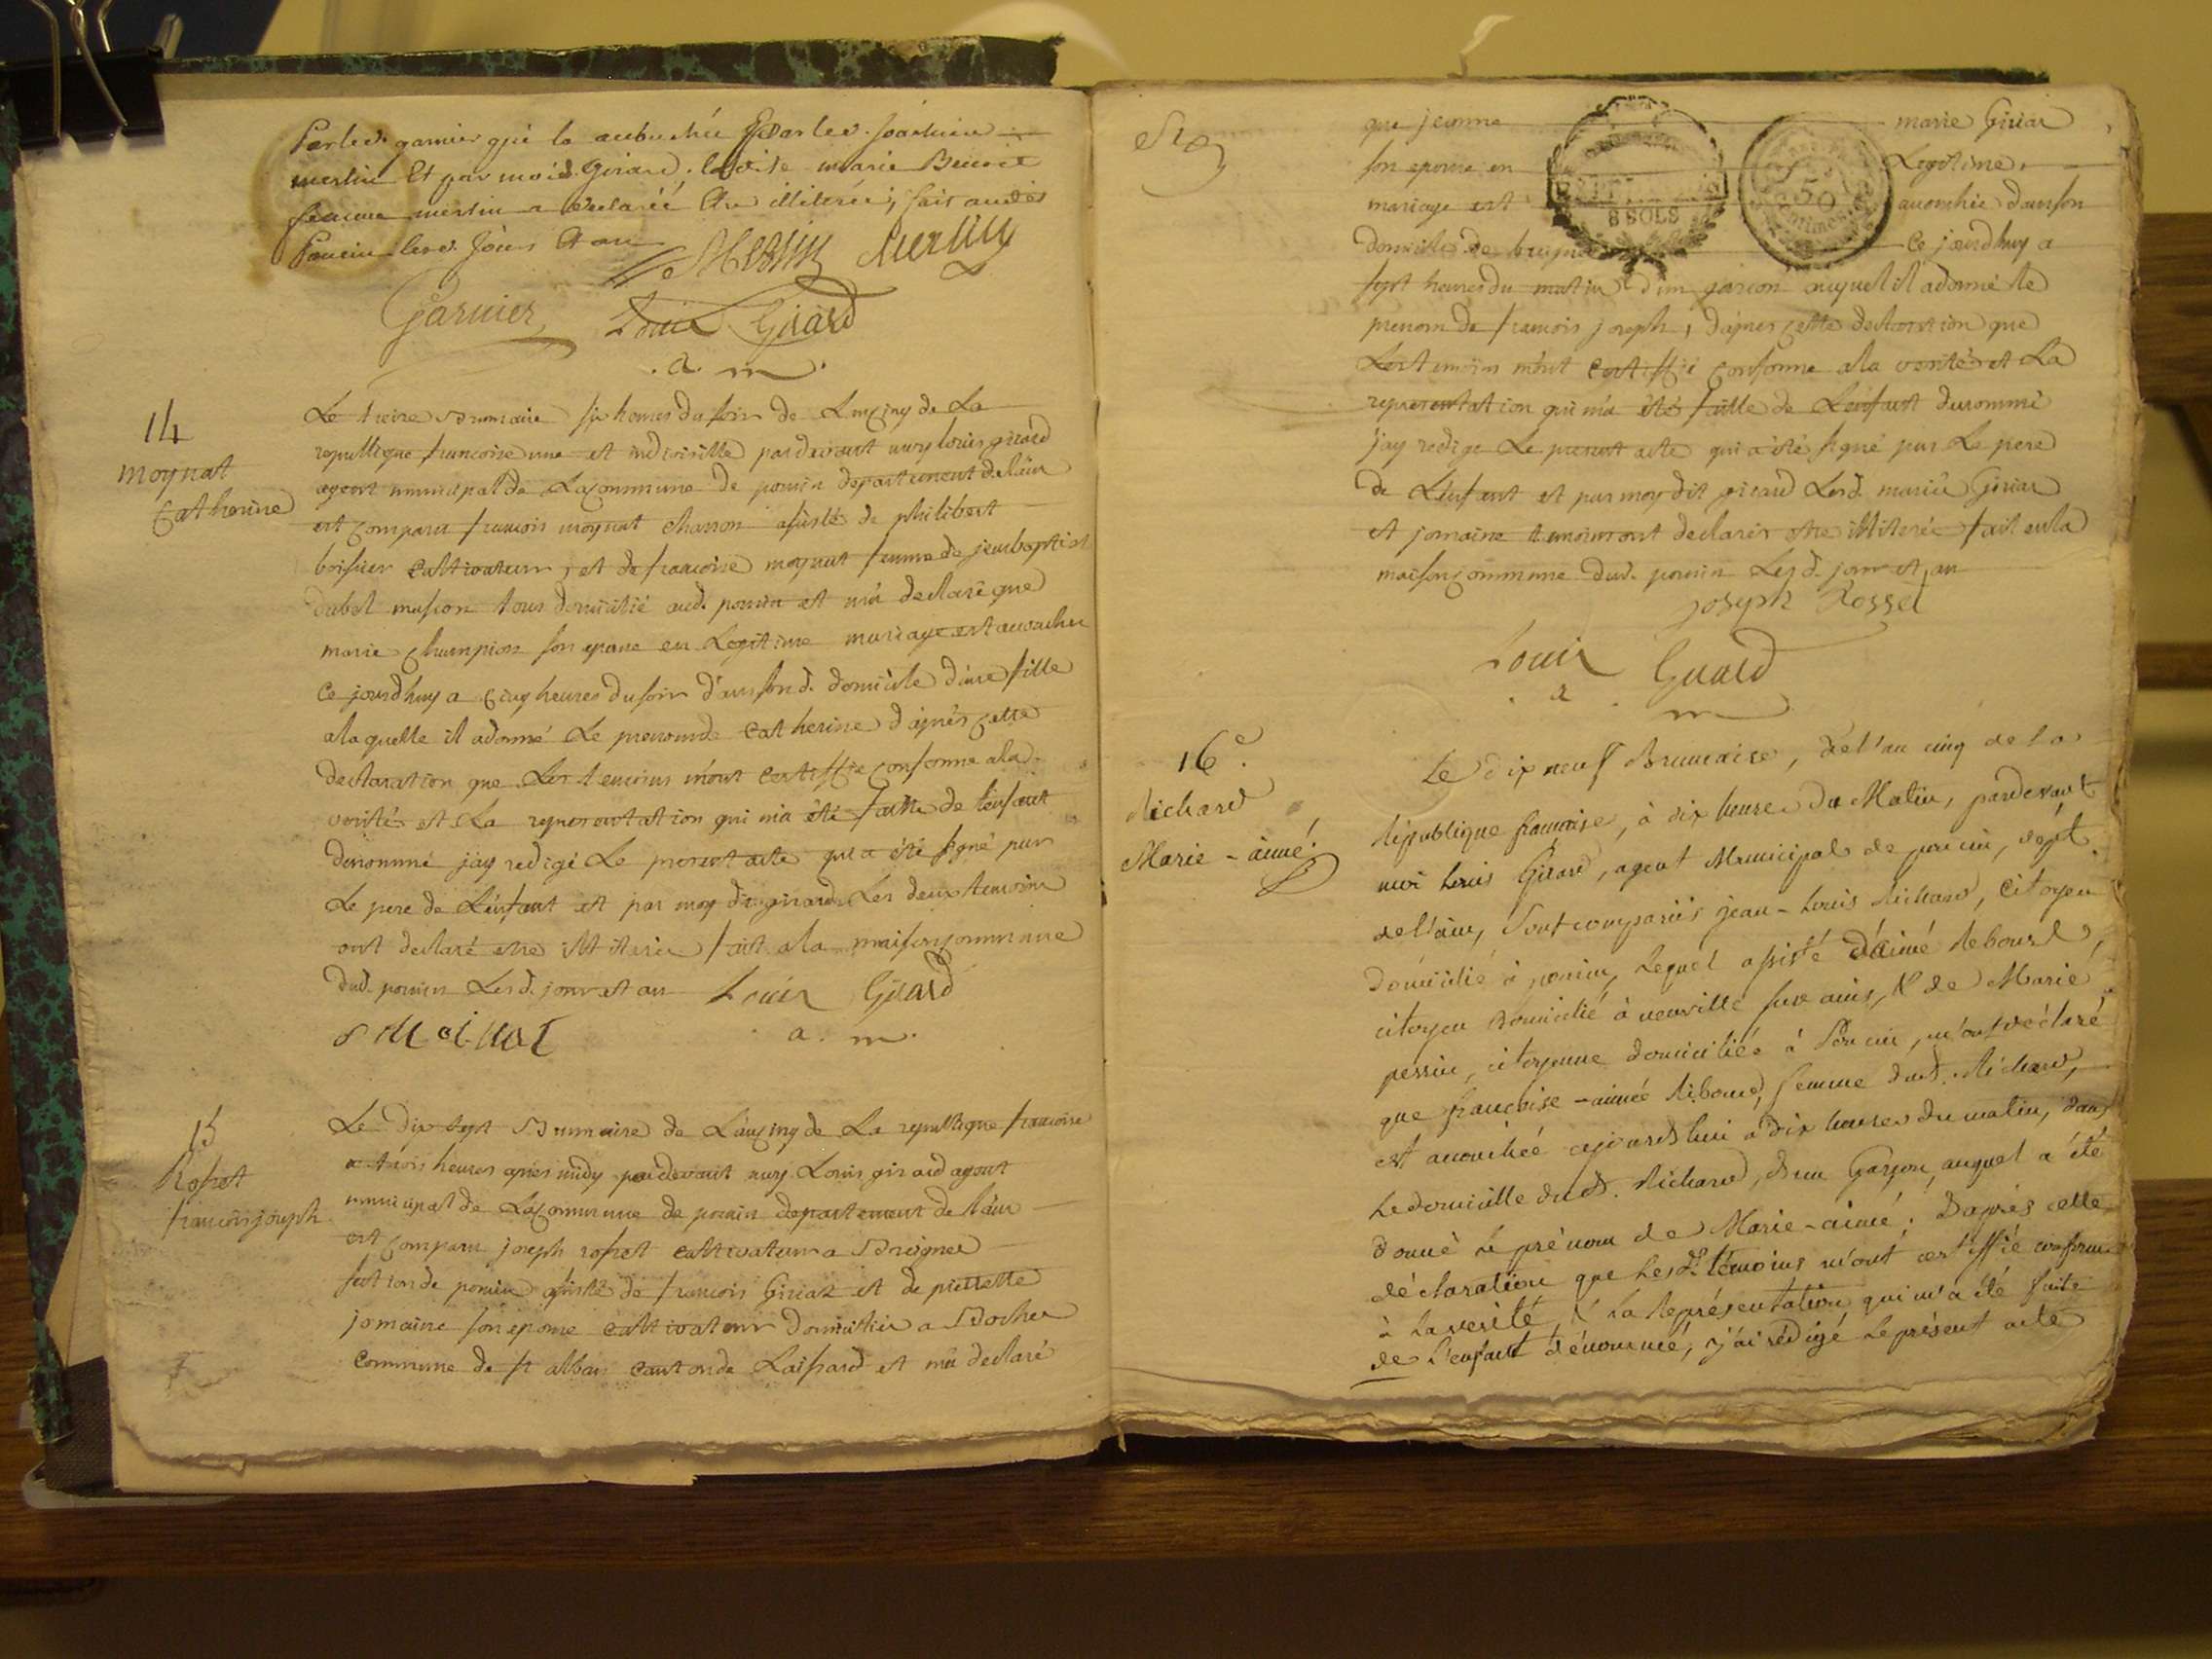 Parled. garnier qui la accouchée Parled. joachim
merlin Et par moid. Girard. ladite marie Benoit
femme merlin a declarée être illiterée, fait audit
Poncin lesd. jours et an
Merlin
Garnier Louis Girard
. a. m.
14
moynat
Catherine
Le treize Brumaire six heures du soir de Lan cinq de La
republique francoise une et indivisible pardevant moy louis girard
agent municipal de La commune de poncin departement de lain
est comparu francois moynat charron assisté de philibert
boissier cultivateur, et de francoise moynat femme de jean baptiste
dubel masson tous domicilié aud. poncin et m'a declaré que
marie champion son epouse en Legitime mariage est accouchée
ce jourdhuy a cinq heures du soir dans sond. domicile d'une fille
a laquelle il a donné Le prenom de catherine d'après cette
declaration que Les temoins m'ont certiffié conforme a la
verité et La representation qui m'a été faitte de l'enfant
denommé j'ay redigé Le present acte qui a été signé par
Le pere de L'enfant et par moy dit girard Les deux temoins
ont declaré etre illiteré fait a la maison commune
dud. poncin Lesd. jour et an Louis Girard
f moinat a. m.
15
Rosset
francois joseph
Le dix sept Brumaire de L'an cinq de La republique francoise
a trois heures apres midy pardevant moy Louis girard agent
municipal de La commune de poncin departement de l'ain
est comparu joseph rosset cultivateur a Breignes
section de poncin assisté de francois Giriat et de pierrette
jomaine son epouse cultivateur domicilié a Boches
commune de st alban canton de Laissard et m'a declaré
que jeanne marie Giriat
son epouse en Legitime
mariage est accouchée dans son
domicile de breignes ce jourdhuy a
sept heures du matin d'un garcon auquel il a donné le
prenom de francois joseph, d'apres cette declaration que
Les temoins m'ont certiffié conforme a la verité et La
representation qui m'a été faitte de L'enfant denommé
j'ay redigé Le present acte qui a été signé par Le pere
de L'enfant et par moy dit girard Lesd. mariés Giriat
et jomaine temoins ont declarés etre illiteré fait en la
maison commune dud. poncin Lesd. jour et an
joseph Rosset
Louis Girard
. a . m
8 SOLS
50
centimes
16e.
Richard
Marie - aimé.
Le dix neuf Brumaire, de l'an cinq de la
République française, à dix heures du Matin, pardevant
moi Louis Girard, agent Municipal de poncin, dépt.
de l'ain, sont comparûs jean - Louis Richard, Citoyen
Domicilié à poncin, Lequel assisté d'aimé Reboul,
citoyen Domicilié à neuville sur ains, & de Marie
perrin, citoyenne domiciliée à Poncin, m'ont déclaré
que françoise - aimée Riboud, femme dud. Richard,
est accouchée aujourd'hui à dix heures du matin, dans
Le domicille dud. Richard, d'un Garçon, auquel a été
donné le prénom de Marie - aimé. D'après cette
déclaration que Lesd. témoins m'ont certiffié conforme
à la verité, & La Représentation qui m'a été faite
de l'enfant dénommé, j'ai rédigé Le présent acte